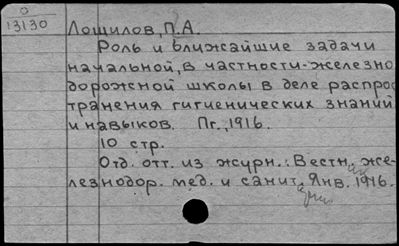 0
13130
Лощилов, П.А.
Роль и ближайшие задачи
начальной, в частности-железно
дорожной школы в деле распро
транения гигиенических знаний
и навыков. Пг., 1916.
10 стр.
Отд. отт. из журн.: Вестн. же-
лезнодор. мед. и санит. Янв. 1916.